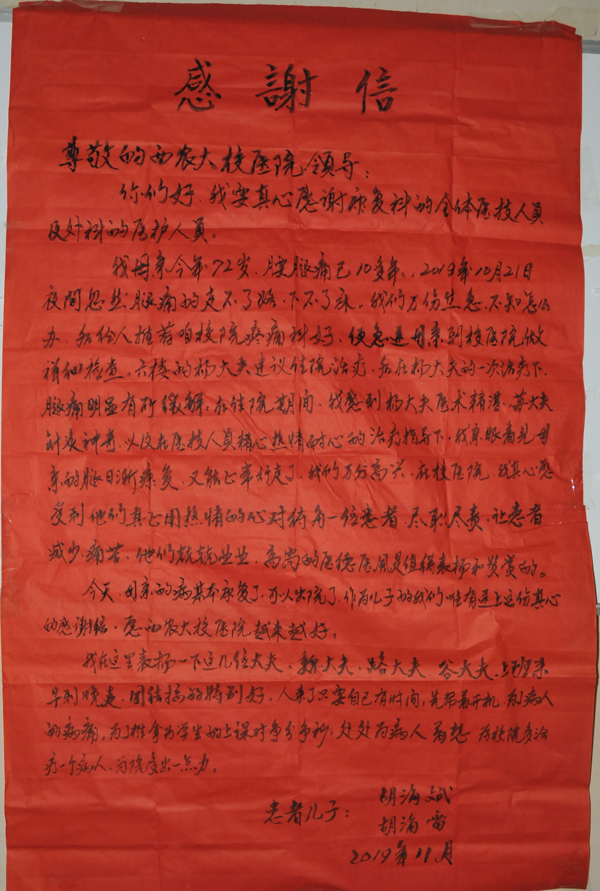 感謝信
尊敬的西农大校医院领导：
你们好，我要真心感谢康复科的全体医技人员
及外科的医护人员。
我母亲今年72岁，腰腿痛已10多年，2019年10月21日
夜间忽然腿痛的走不了路，下不了床，我们万份焦急，不知怎么
办，私给人推荐咱校院疼痛科好，便急送母亲到校医院做
详细检查，六楼的杨大夫建议住院治疗，私在杨大夫的一次治疗下，
腿痛明显有所缓解，在住院期间，我感到杨大夫医术精湛，苏大夫
针灸神奇，以及在医技人员精心热情耐心的治疗指导下，我亲眼看见母
亲的腿日渐康复，又能正常行走了，我们万分高兴，在校医院，我真心感
受到他们真正用热情的心对待每一位患者，尽职尽责，让患者
减少痛苦，他们兢兢业业，高尚的医德医风是值得表扬和赞赏的。
今天，母亲的病基本康复了，可以出院了，作为儿子的我们唯有送上这份真心
的感谢信，愿西农大校医院越来越好。
我在这里表扬一下这几位大夫，魏大夫，路大夫 谷大夫，上班来
早到晚走，团结搞的特别好，人来了只要自己有时间，先帮着开机，别病人
的病痛，为了推拿为学生的上课时争分争秒，处处为病人着想 为校院多治
疗一个病人，为院多出一点力。
患者儿子：胡海斌
胡海雷
2019年11月